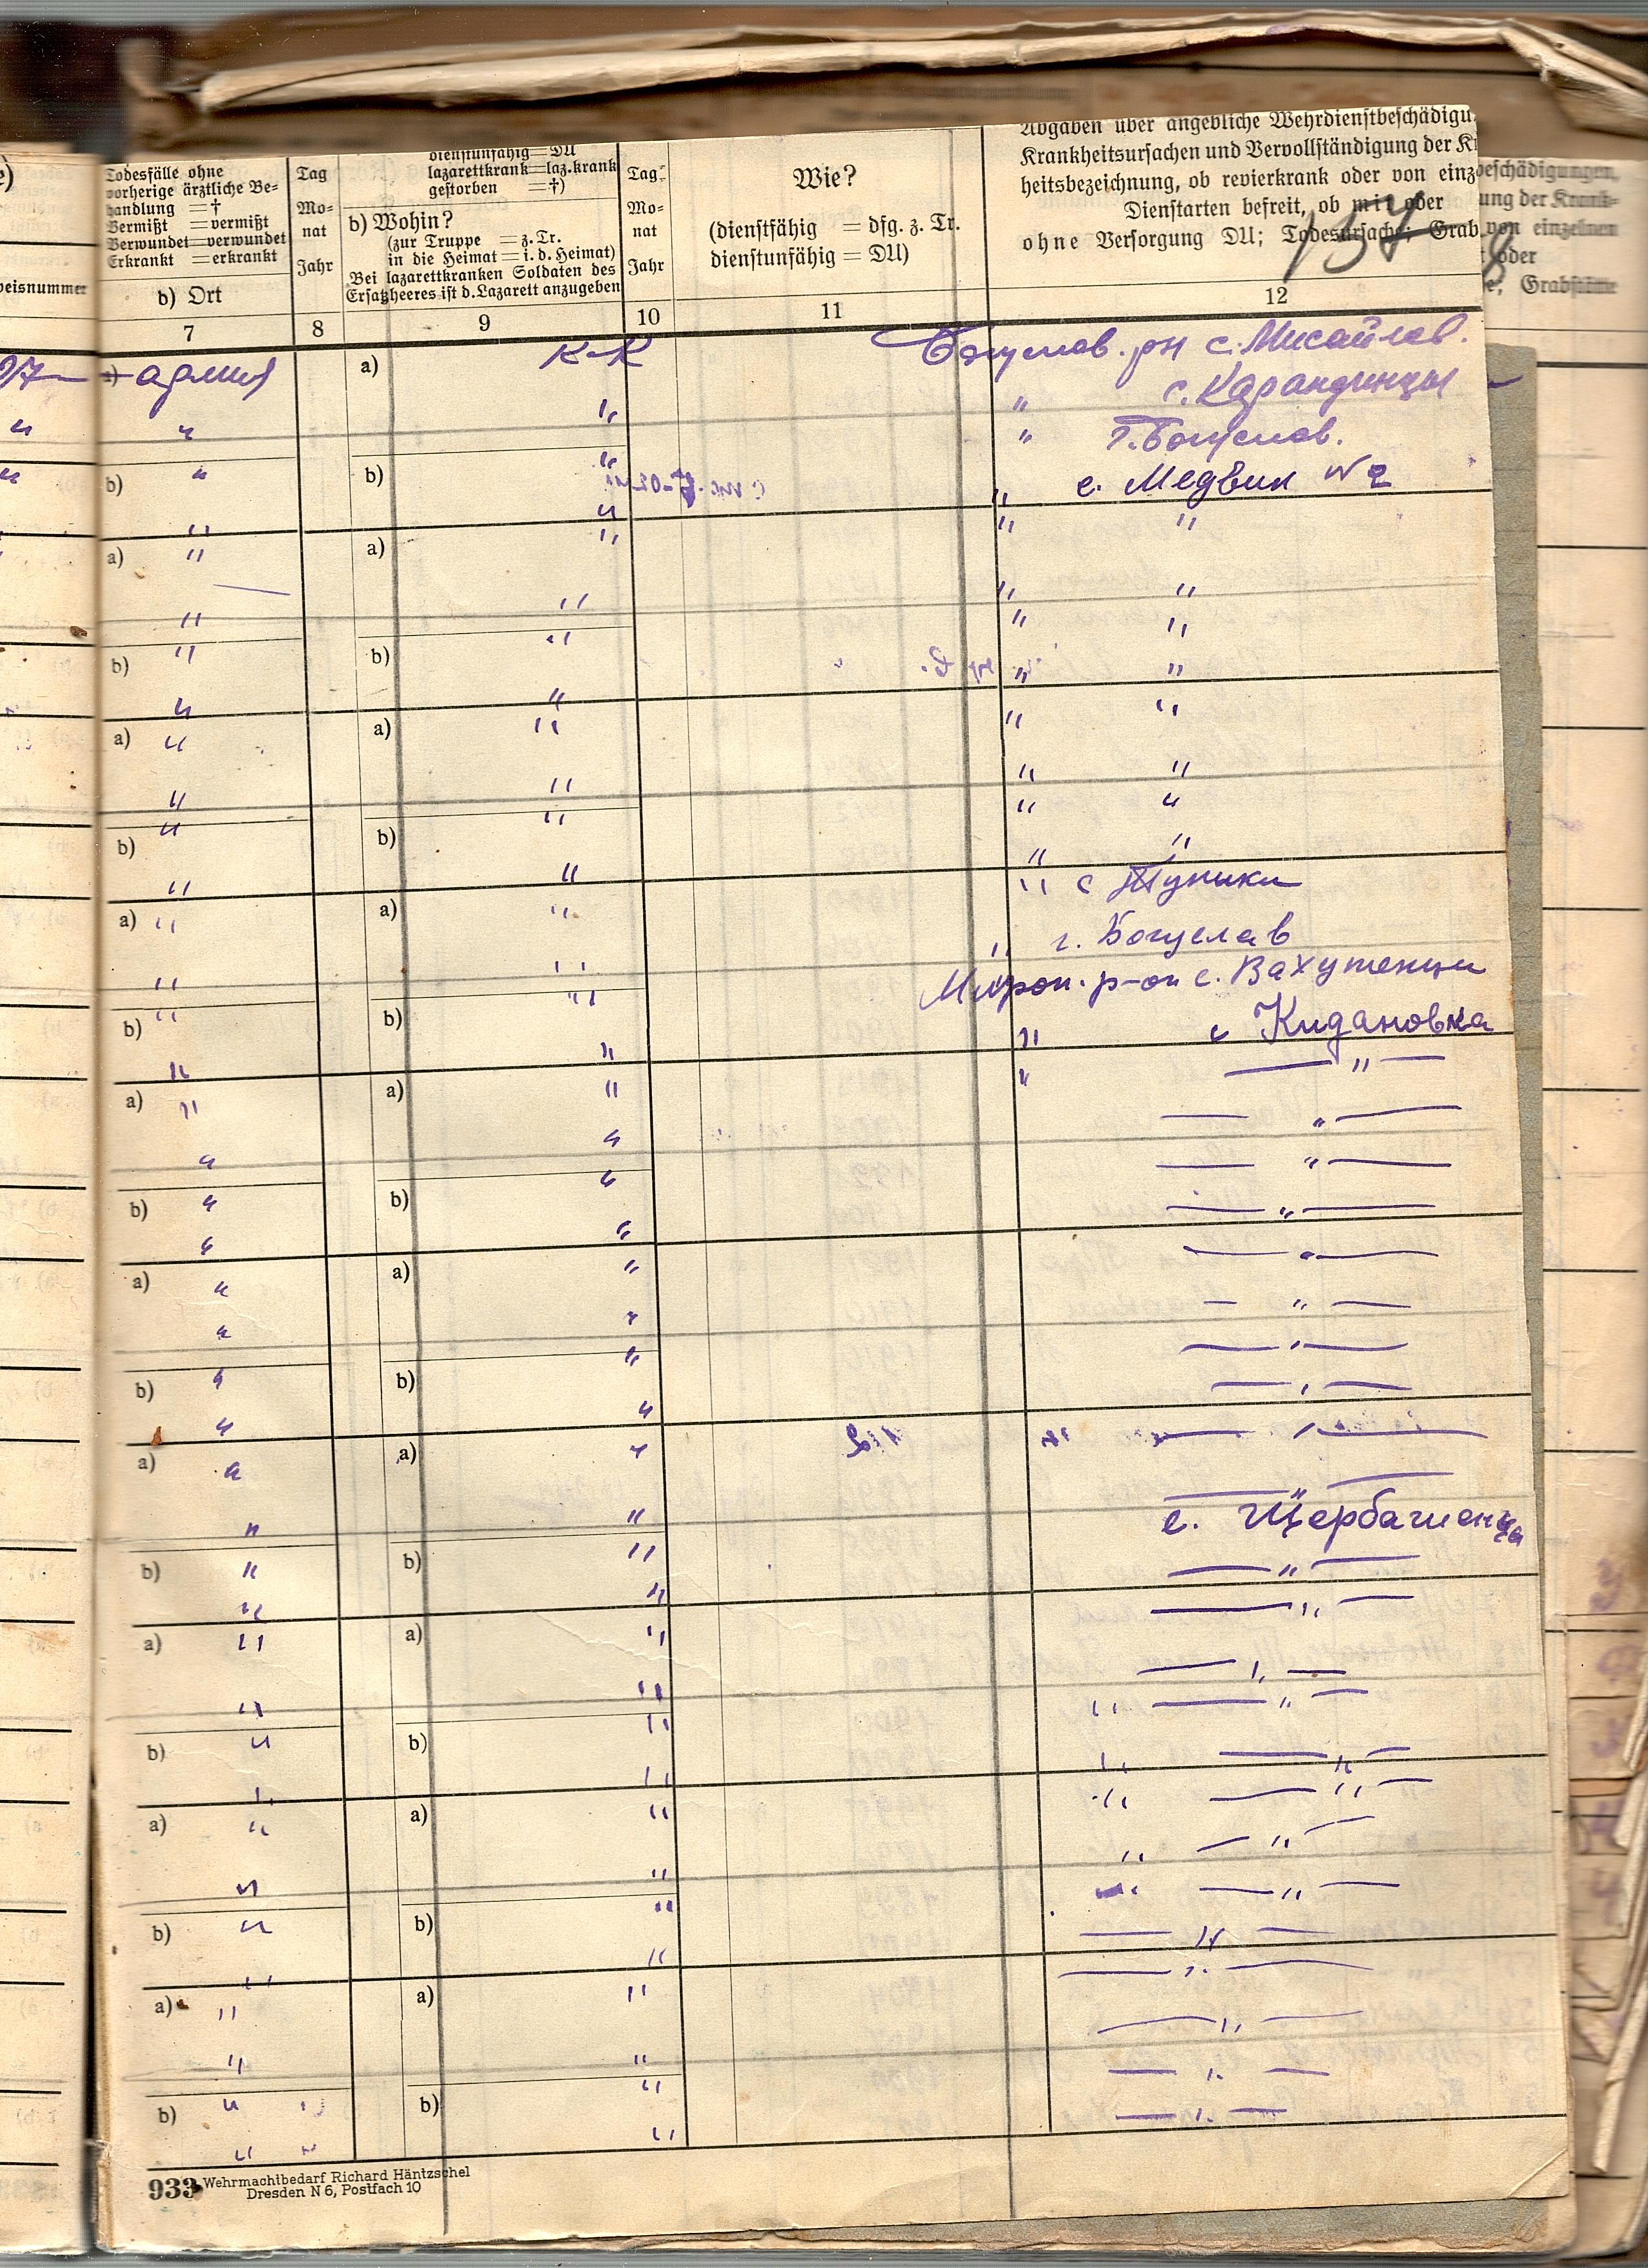 e)
Todesfälle ohne
vorherige ärztliche Be-
handlung = †
Vermißt = vermißt
Verwundet = verwundet
Erkrankt = erkrankt
b) Ort
Tag
Mo-
nat
Jahr
dienstunfähig = DU
lazarettkrank = laz.krank
gestorben = †)
b) Wohin?
(zur Truppe = z. Tr.
in die Heimat = i. d. Heimat)
Bei lazarettkranken Soldaten des
Ersatzheeres ist d. Lazarett anzugeben
Tag
Mo-
nat
Jahr
Wie?
(dienstfähig = dfg. z. Tr.
dienstunfähig = DU)
Abgaben über angebliche Wehrdienstbeschädigu
Krankheitsursachen und Vervollständigung der K
heitsbezeichnung, ob revierkrank oder von einz
Dienstarten befreit, ob mit oder
ohne Versorgung DU; Todesursache; Grab
beschädigungen,
ung der Krank-
von einzelnen
oder
e, Grabstätte
eisnummer
7 8 9 10 11 12
армия a) К-К Богуслав. рн с. Мисайлов.
" " " с. Карандинцы
" " " г. Богуслав.
b) " b) " " с. Медвин N 2
" " "
a) " a) " " "
" " " "
b) " b) " " "
" " " "
a) " a) " " "
" " " "
b) " b) " " "
" " " с Тупики
a) " a) " " г. Богуслав
" " Мирон. р-он с. Вахутенци
b) " b) " " с Кидановка
" " " — " —
a) " a) " — " —
" " — " —
b) " b) " — " —
" " — " —
a) " a) " — " —
" " — " —
b) " b) " — " —
" " — " —
a) " a) " — " —
" " с. Щербашенца
b) " b) " — " —
" " — " —
a) " a) " — " —
" " " — " —
b) " b) " " — " —
" " " — " —
a) " a) " " — " —
" " " — " —
b) " b) " — " —
" " — " —
a) " a) " — " —
" " — " —
b) " b) " — " —
" "
933 Wehrmachtbedarf Richard Häntzschel
Dresden N 6, Postfach 10